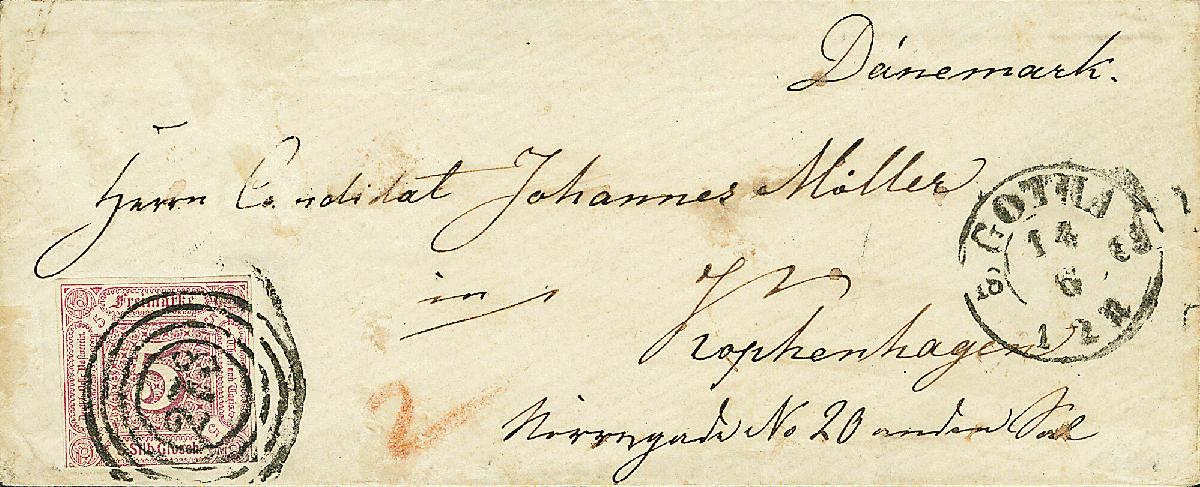 Dänemark.
Herrn Candidat Johannes Möller
in
Kophenhagen
Nörregade No 20 anden Sal
2
GOTHA
14
6
12
Freimarke
5 5
Silb. Grosch.